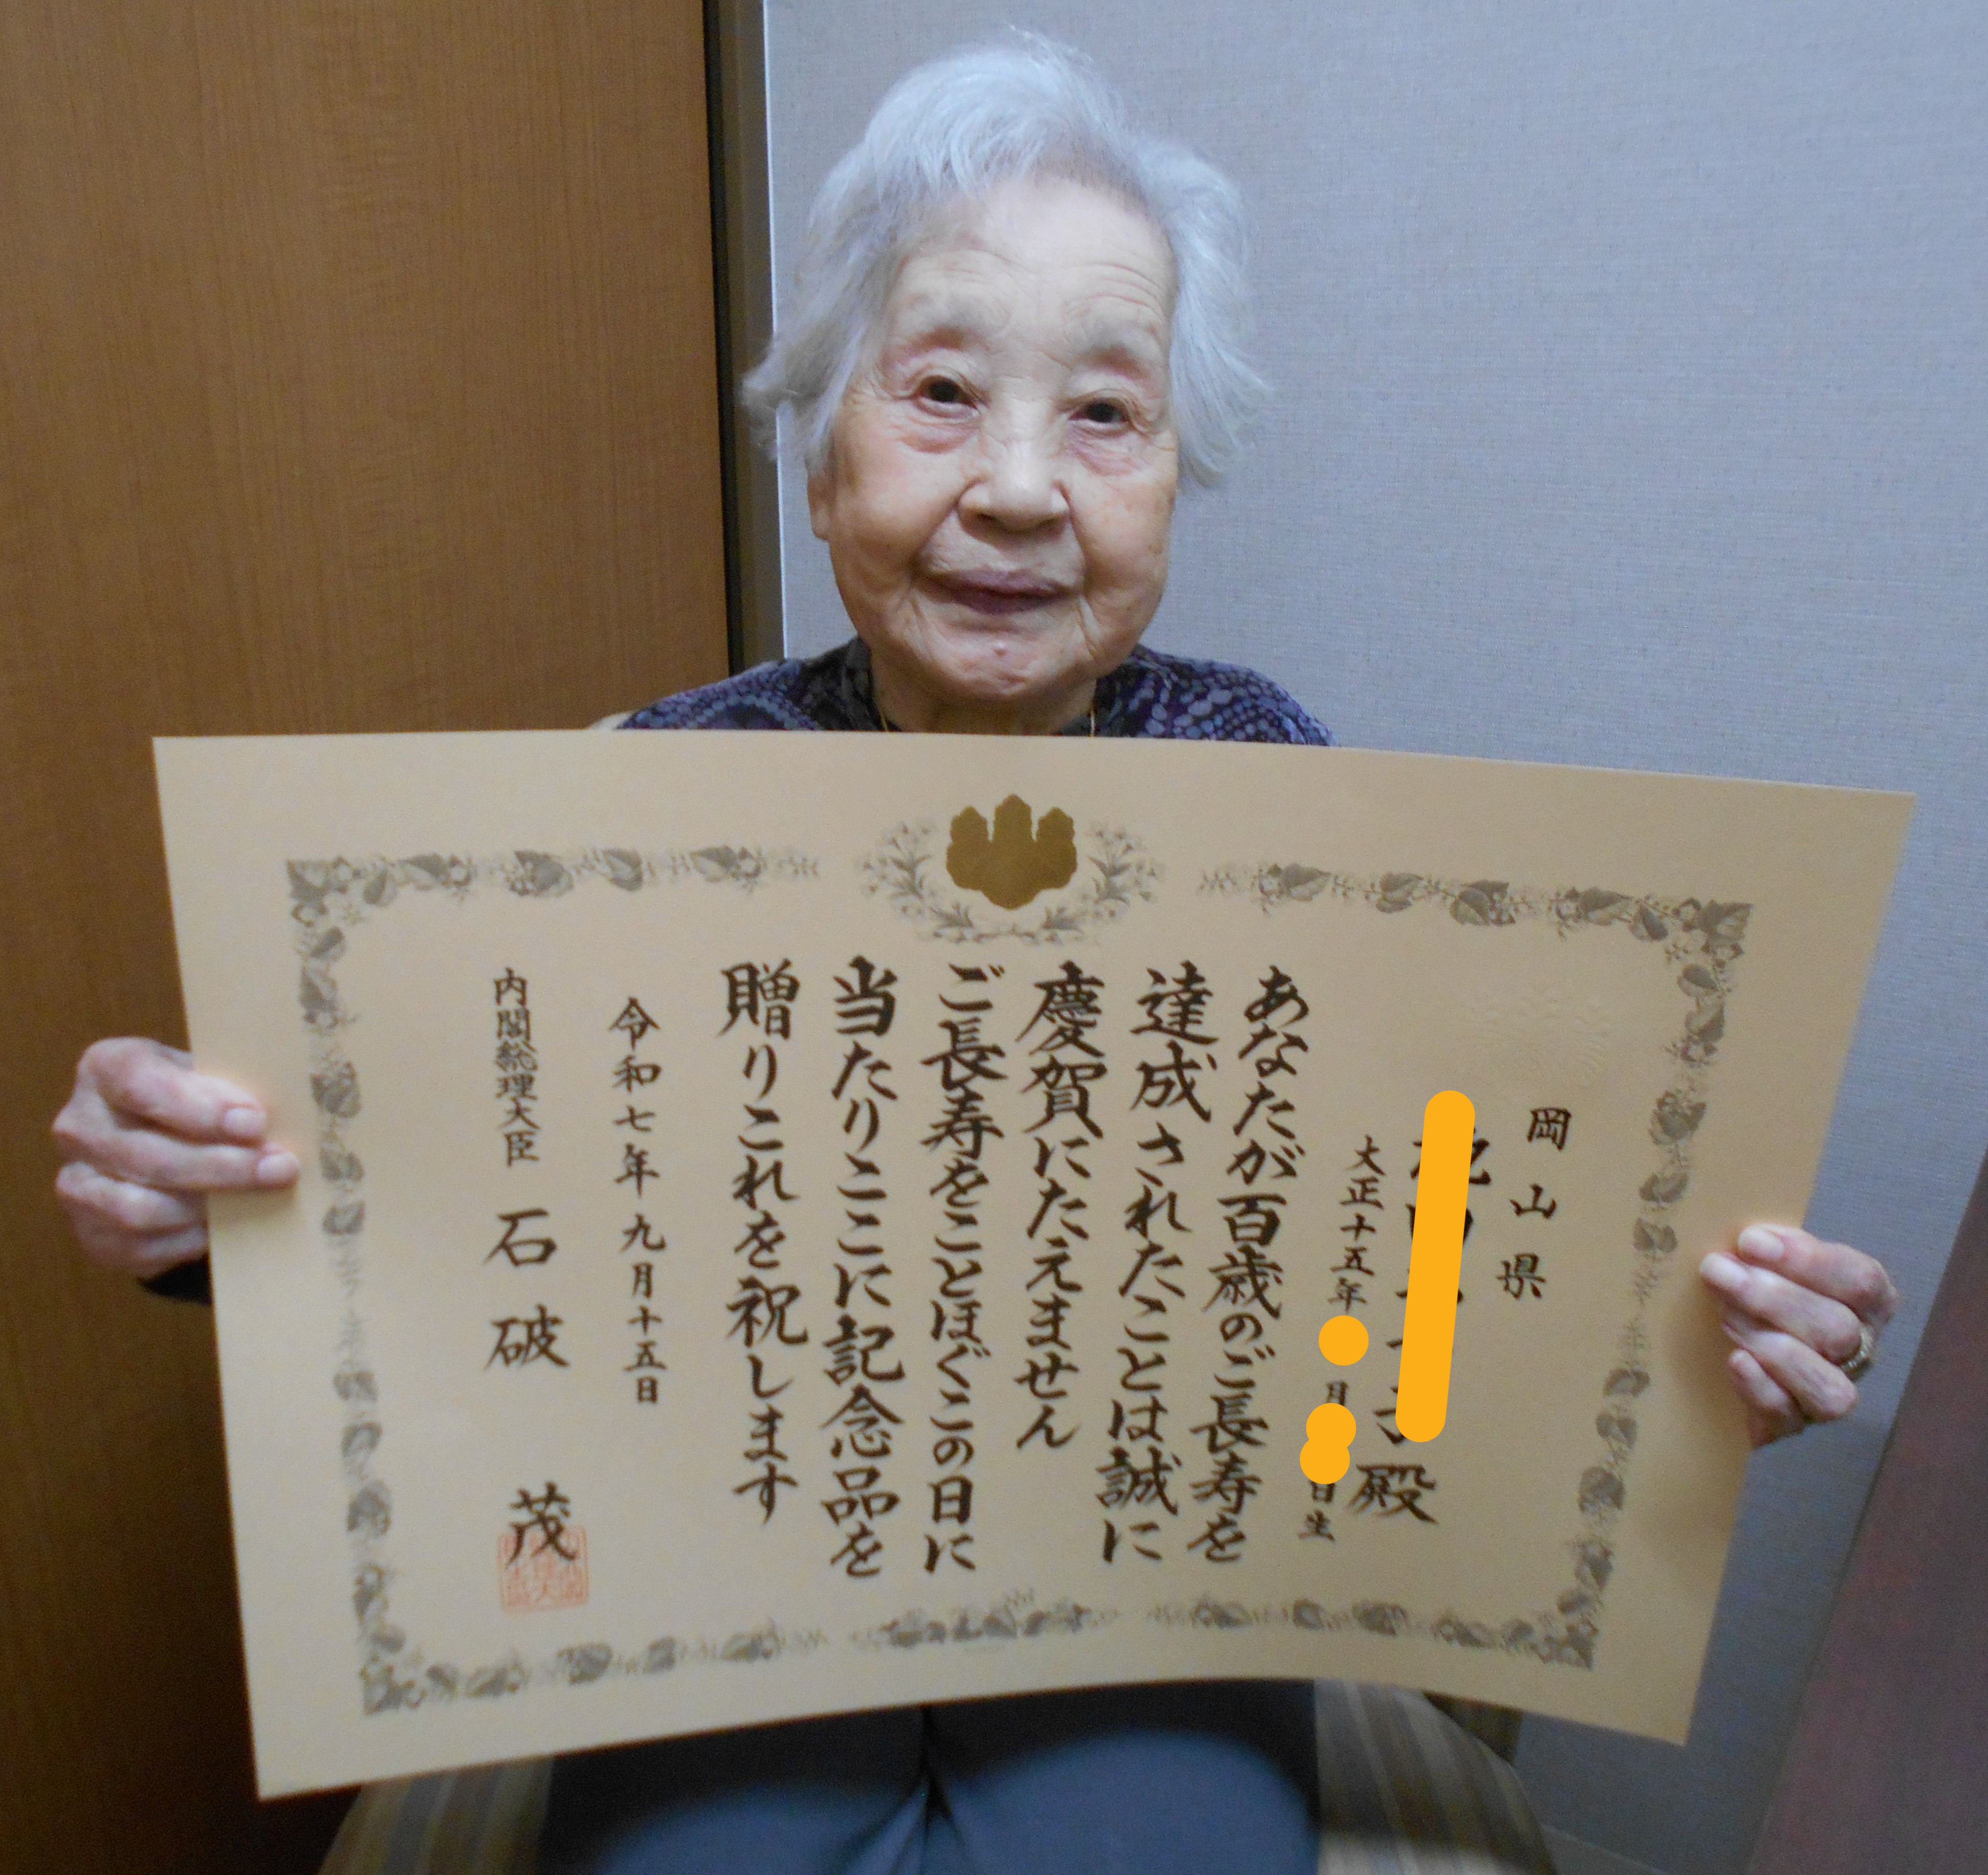 岡山県
殿
大正十五年 月 日生
あなたが百歳のご長寿を
達成されたことは誠に
慶賀にたえません
ご長寿をことほぐこの日に
当たりここに記念品を
贈りこれを祝します
令和七年九月十五日
内閣総理大臣 石破 茂